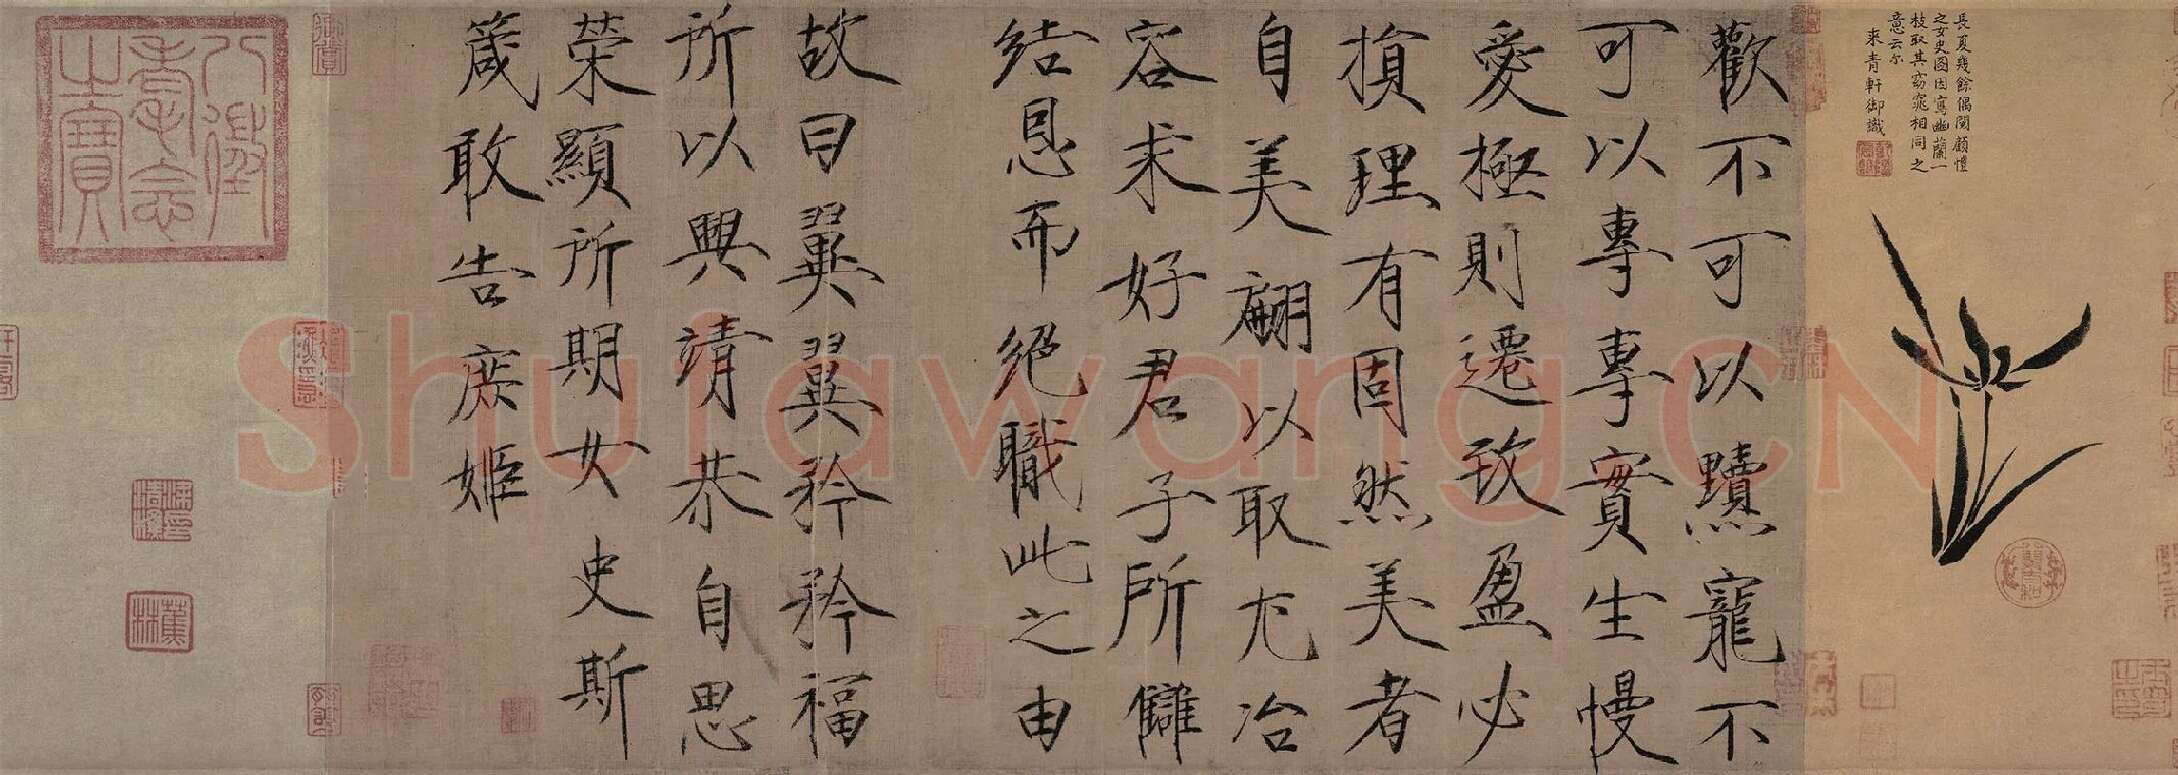 長夏幾餘偶閱顧愷
之女史圖因寫幽蘭一
枝取其窈窕相同之
意云尔
來青軒御識
歡不可以黷寵不
可以專專實生慢
愛極則遷致盈必
損理有固然美者
自美翩以取尤冶
容求好君子所讎
結恩而絕職此之由
故曰翼翼矜矜福
所以興靖恭自思
榮顯所期女史斯
箴敢告庶姬
八徵
耄念
之寶
蕉林
Shufawang.CN